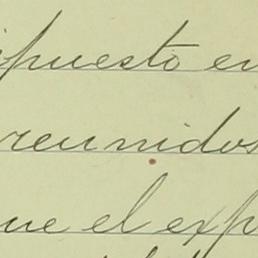 ipuesto en
reunidos
ue el exp